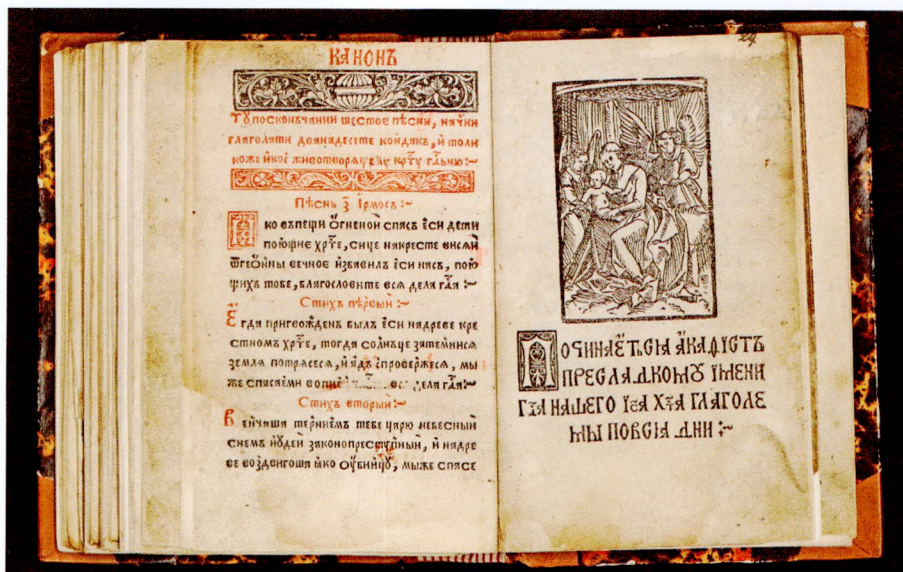 КАНОНЪ
Тꙋ посконъчании шестое пѣсни, начни
глаголати дванадесете кондакъ, и толи
коже икос животворящемꙋ крⷭ҇тꙋ гл҃ѧню :~
Пѣснь з҃ Ірмосъ :~
ко въпещи ѻгненой спасъ єси дети
поющие хрⷭ҇те, сице накресте висѧй
ѿгеѻнны вечное избавилъ єси насъ, пою
щихъ тобе, благословите всѧ дела гд҃ѧ :~
Стихъ пѣрвый :~
Єгда пригвожденъ былъ єси надреве кре
стномъ хрⷭ҇те, тогда солньце затемнисѧ
землѧ потрѧсесѧ, и адъ испровержесѧ, мы
же спасаеми вопиемъ дела гд҃ѧ :~
Стихъ вторый :~
Венчаша терниемъ тебе царю небесный
снемъ июдей законопреступный, и надре
ве воздвигоша ꙗко ѹбийцꙋ, мыже спасе
24
ПОЧИНАЄТЬСІА АКАФІСТЪ
ПРЕСЛАДКОМꙊ ІМЕНИ
ГД҃А НАШЕГО ІС҃А ХСТ҃А ГЛАГОЛЕ
МЫ ПОВСІА ДНИ :~